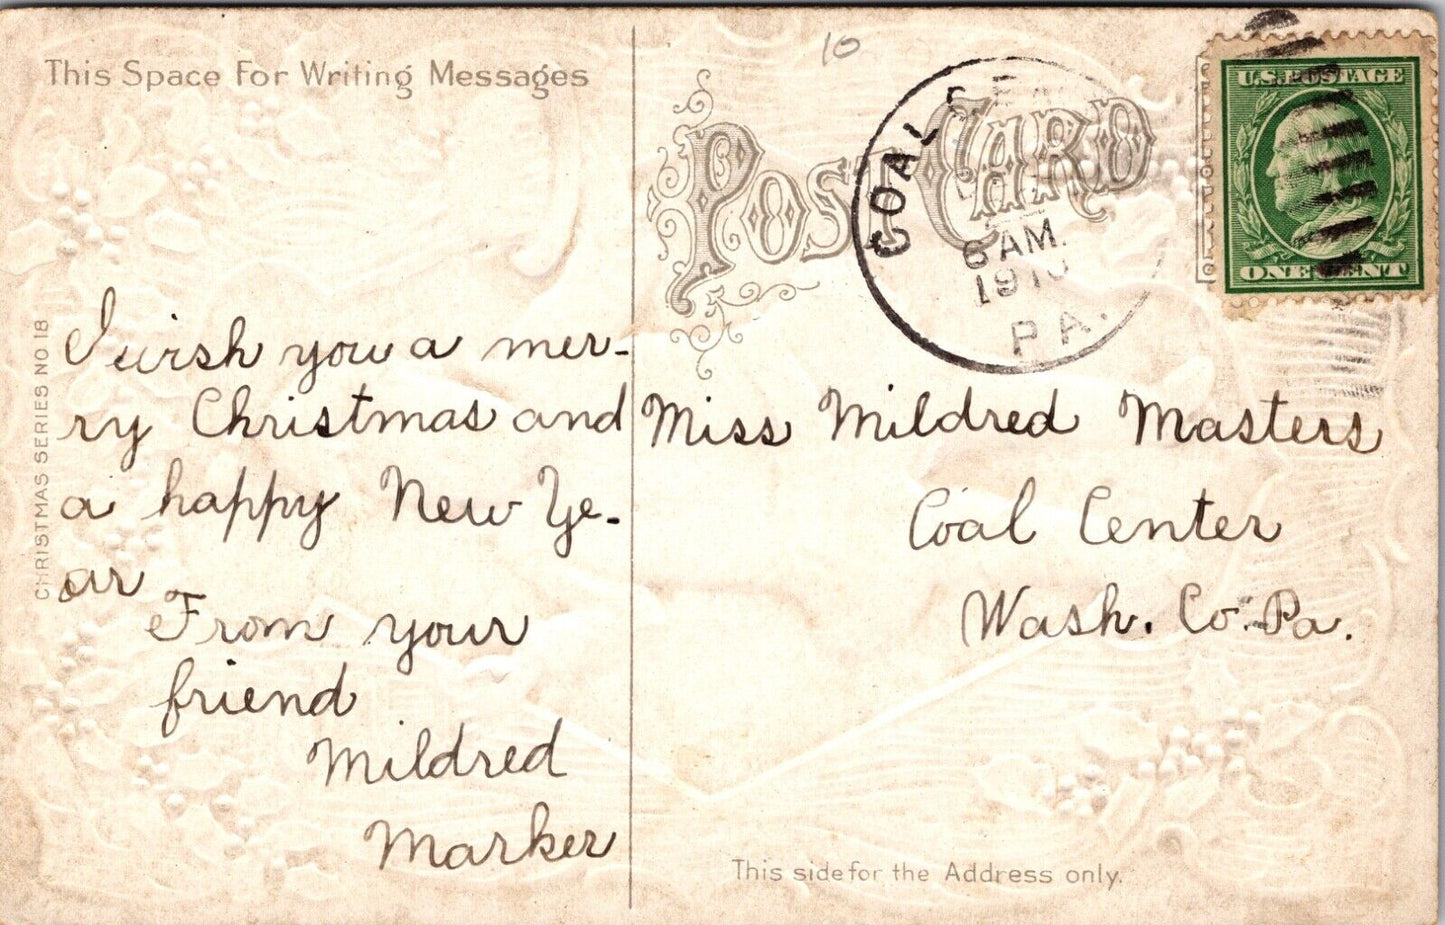 This Space For Writing Messages
10
POST CARD
COAL CEN
6 AM.
1910
PA.
U.S. POSTAGE
ONE CENT
CHRISTMAS SERIES NO 18
I wish you a mer-
ry Christmas and
a happy New Ye-
ar
From your
friend
Mildred
Marker
Miss Mildred Masters
Coal Center
Wash. Co. Pa.
This side for the Address only.